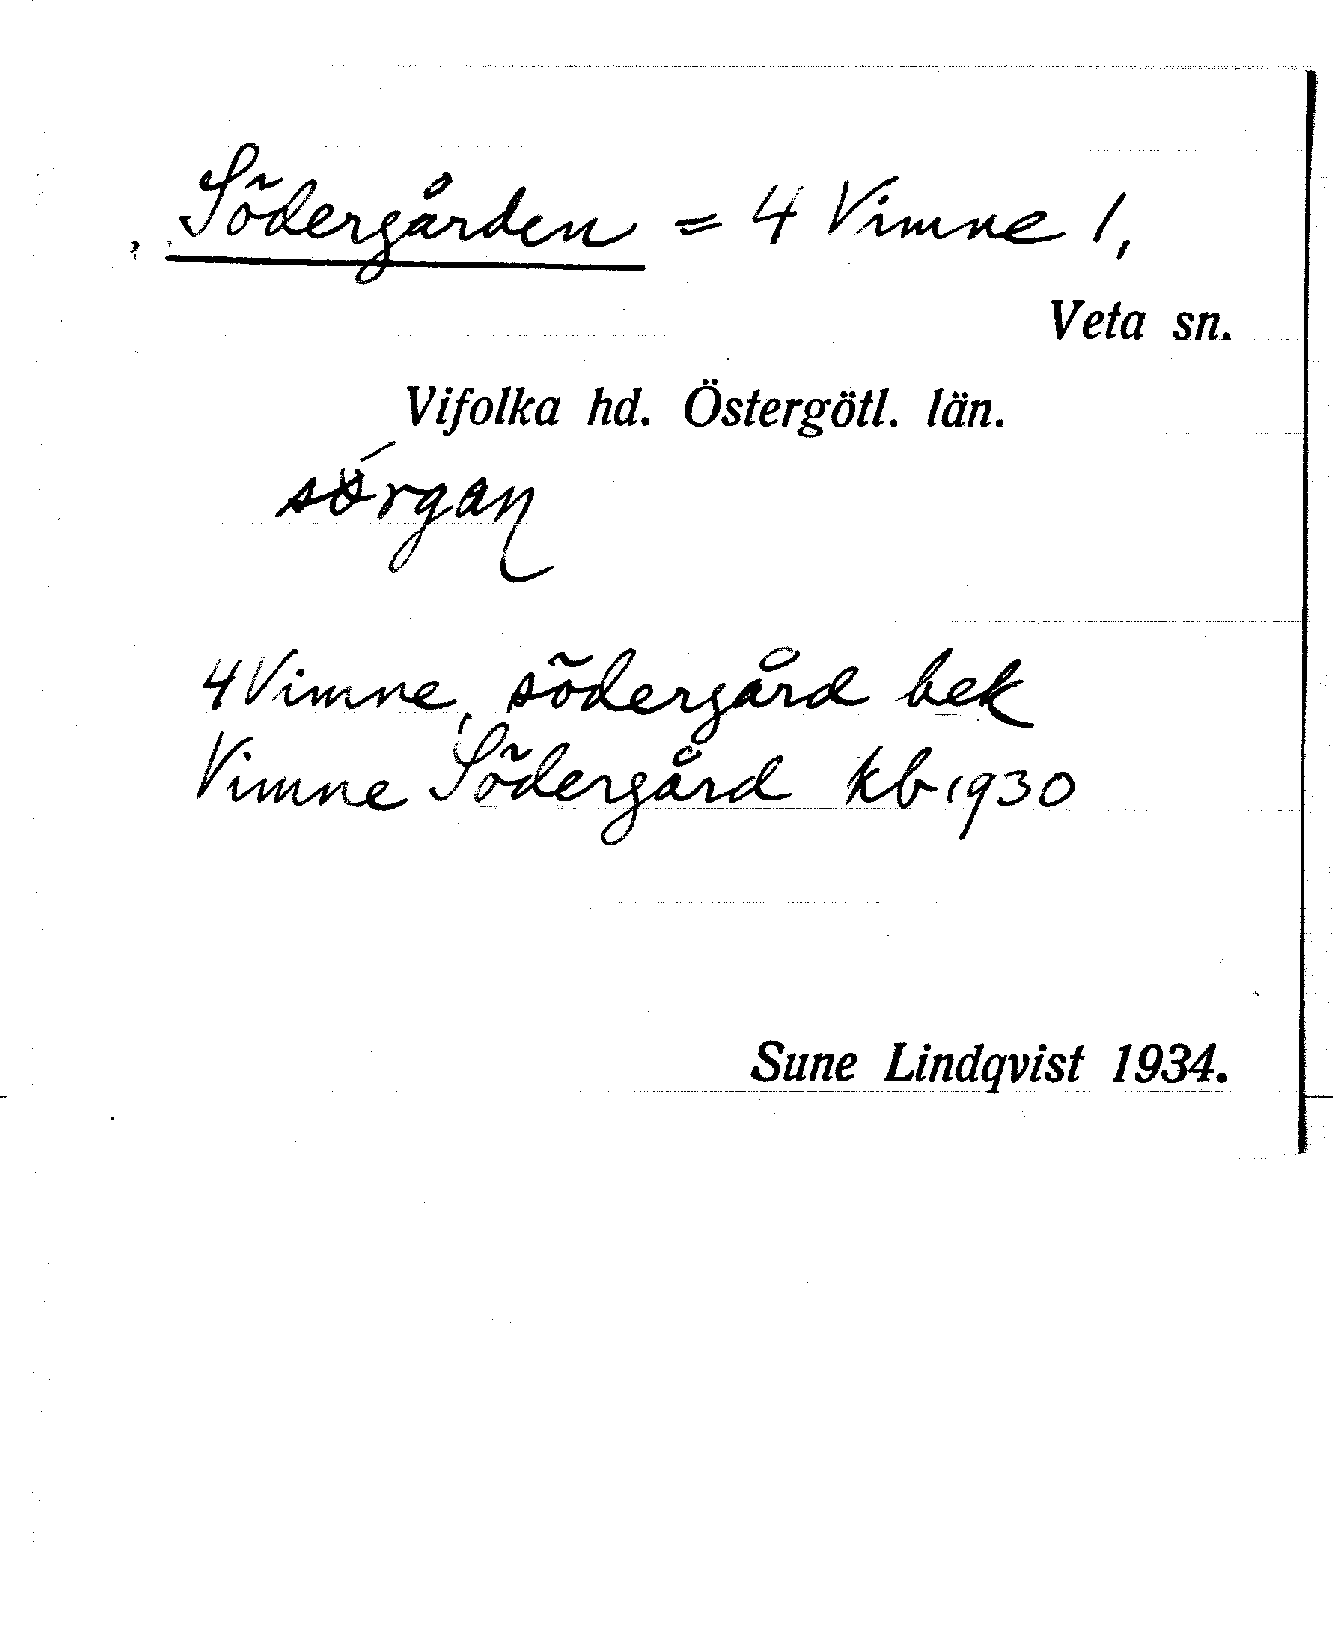 Södergården = 4 Vimne 1,
Veta sn.
Vifolka hd. Östergötl. län.
sö́rgaɳ
4 Vimne, södergård bek
Vimne Södergård kb 1930
Sune Lindqvist 1934.